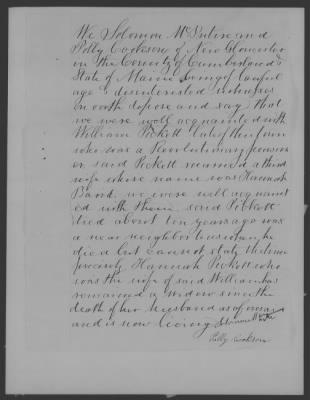 We Solomon McIntire and
Polly Cookson of New Gloucester
in the County of Cumberland
State of Maine being of lawful
age & disinterested witnesses
on oath depose and say that
we were well acquainted with
William Pickett late of the town
who was a Revolutionary pensioner
or said Pickett married a third
wife whose name was Hannah
Band we were well acquaint
ed with them said Pickett
died about ten years ago was
a near neighbor to us when he
died but cannot state the time
precisely Hannah Pickett who
was the wife of said William has
remained a widow since the
death of her husband as aforesaid
and is now living
Polly Cookson